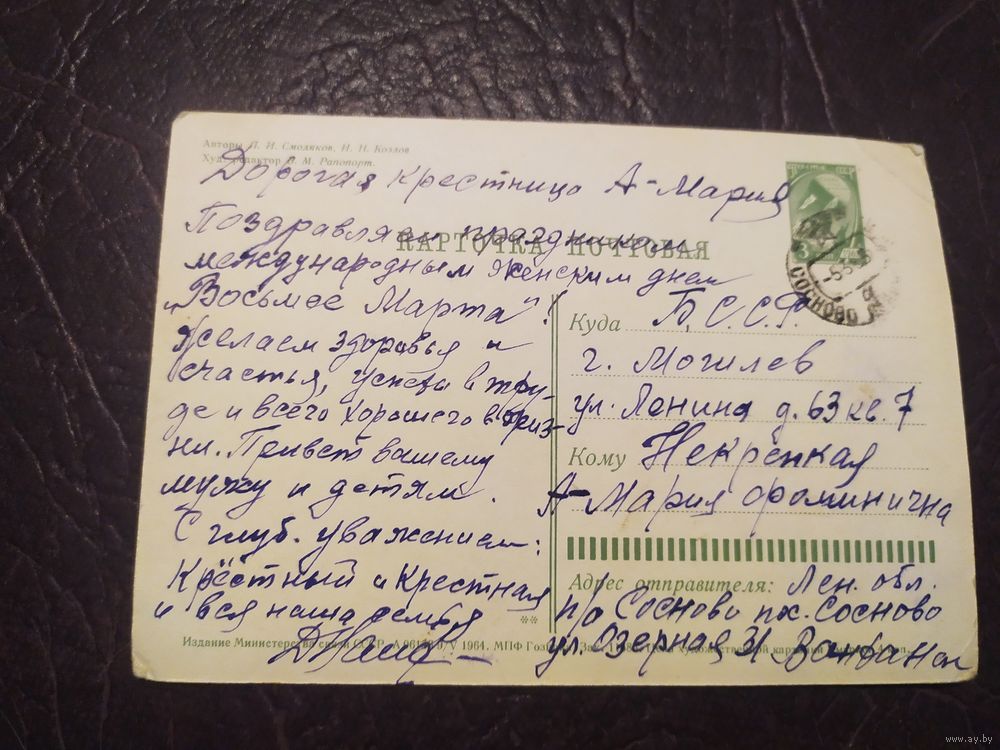 Авторы Л. И. Смоляков, И. Н. Козлов
Худ. редактор М. Рапопорт.
Дорогая крестница А-Мария
Поздравляем праздником
КАРТОЧКА ПОЧТОВАЯ
международным женским днем
„Восьмое Марта“!
Желаем здоровья и
счастья, успеха в тру-
де и всего хорошего в жиз-
ни. Привет вашему
мужу и детям.
С глуб. уважением:
Крёстный и Крестная
и вся наша семья
Куда Б.С.С.Р.
г. Могилев
ул. Ленина д. 63 кв. 7
Кому Некрепкая
А-Мария Фоминична
Адрес отправителя: Лен. обл.
п/о Сосново пос. Сосново
ул. Озерная, 31
Издание Министерства связи СССР. V 1964. МПФ
СОСНОВО
www.ay.by